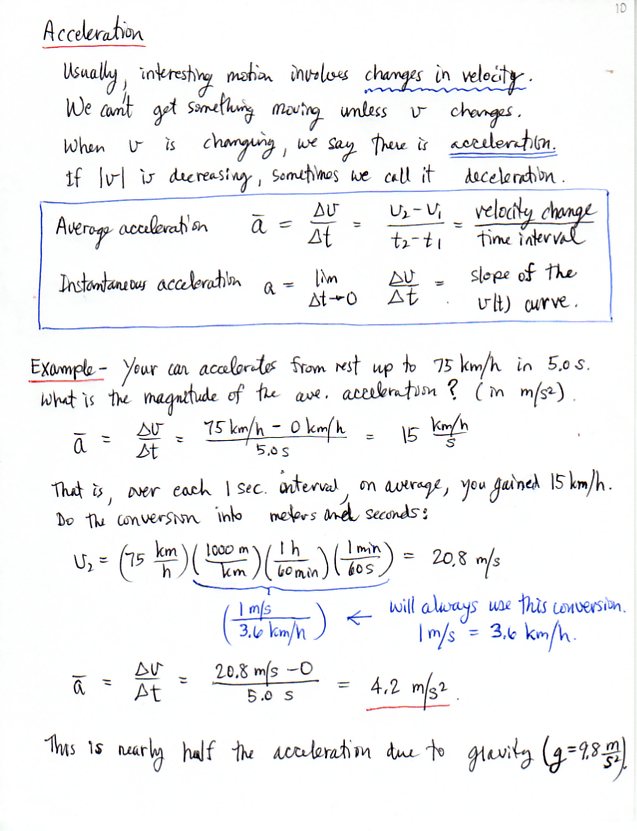 10
Acceleration
Usually, interesting motion involves changes in velocity.
We can't get something moving unless v changes.
When v is changing, we say there is acceleration.
If |v| is decreasing, sometimes we call it deceleration.
Average acceleration ā = Δv/Δt = (v₂ - v₁)/(t₂ - t₁) = velocity change/time interval
Instantaneous acceleration a = lim Δt→0 Δv/Δt = slope of the v(t) curve.
Example - Your car accelerates from rest up to 75 km/h in 5.0 s.
What is the magnitude of the ave. acceleration? (in m/s²)
ā = Δv/Δt = (75 km/h - 0 km/h)/5.0 s = 15 (km/h)/s
That is, over each 1 sec. interval, on average, you gained 15 km/h.
Do the conversion into meters and seconds:
v₂ = (75 km/h)(1000 m/km)(1 h/60 min)(1 min/60 s) = 20.8 m/s
(1 m/s / 3.6 km/h) ← will always use this conversion.
1 m/s = 3.6 km/h.
ā = Δv/Δt = (20.8 m/s - 0)/5.0 s = 4.2 m/s².
This is nearly half the acceleration due to gravity (g = 9.8 m/s²).